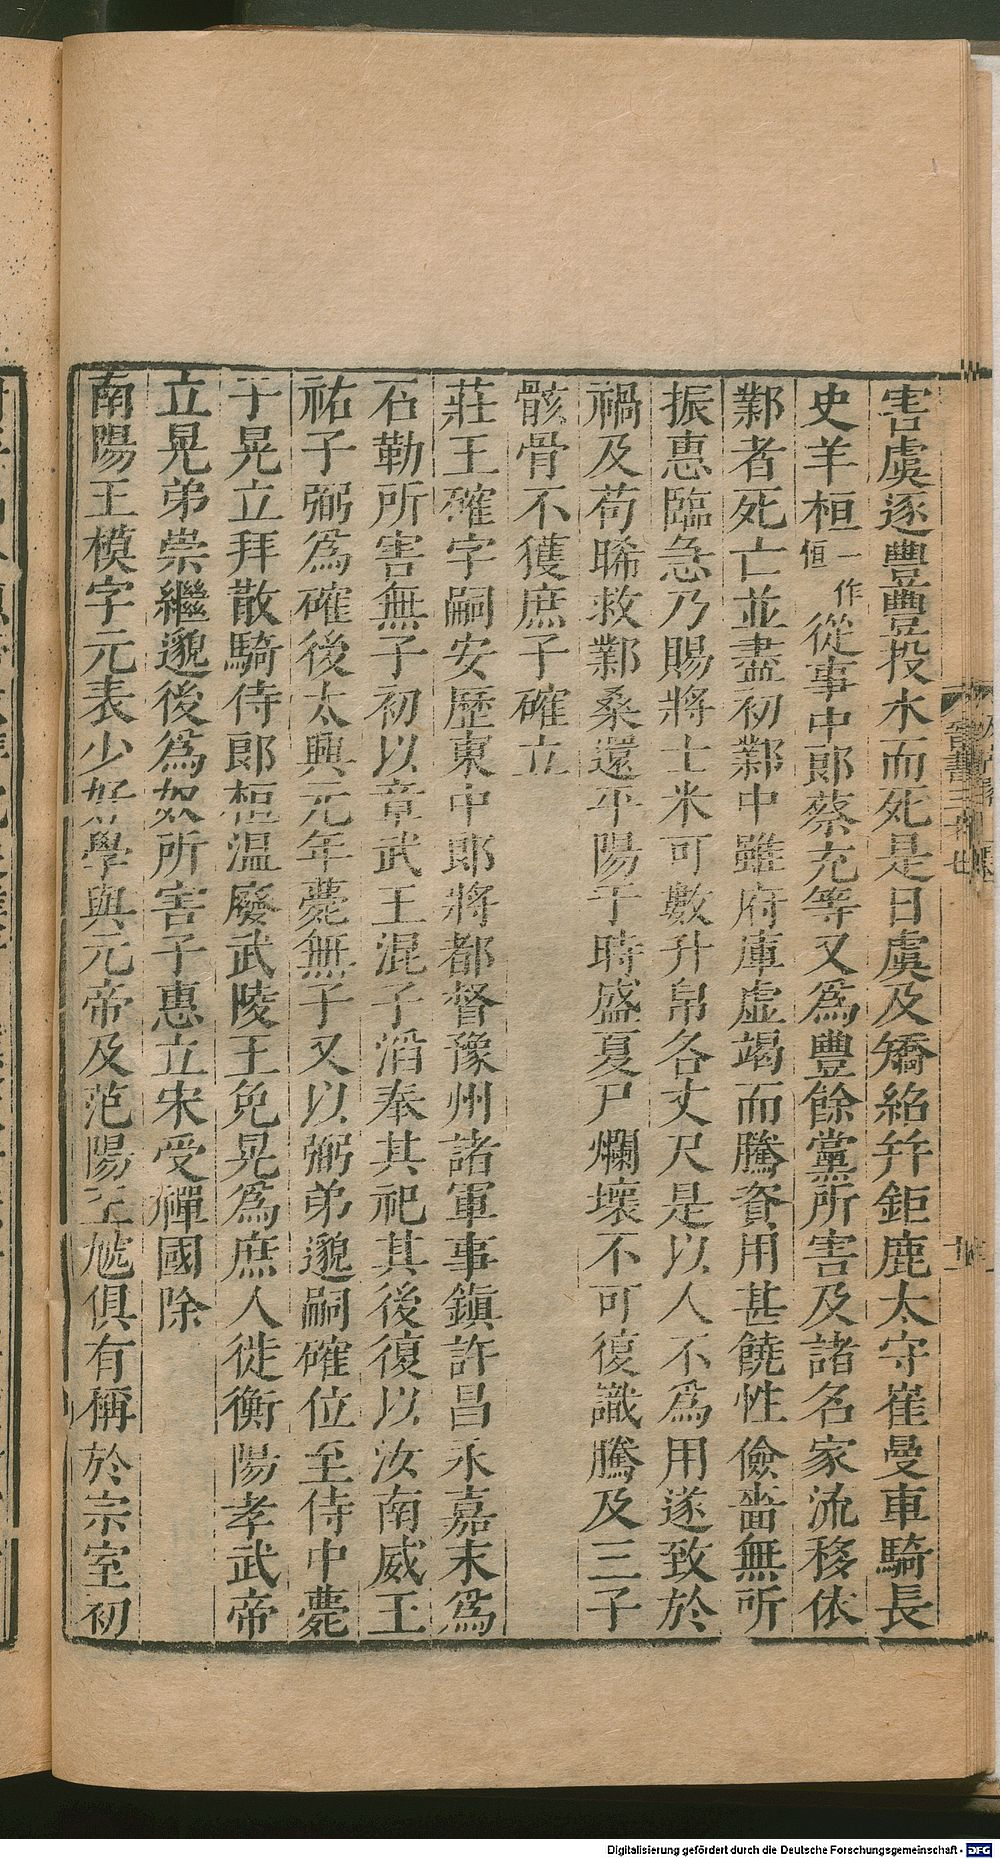 害虞逐豐豐投水而死是日虞及矯紹幷鉅鹿太守崔曼車騎長
史羊桓一作恒從事中郎蔡充等又為豐餘黨所害及諸名家流移依
鄴者死亡並盡初鄴中雖府庫虛竭而騰資用甚饒性儉嗇無所
振惠臨急乃賜將士米可數升帛各丈尺是以人不為用遂致於
禍及苟晞救鄴桑還平陽于時盛夏尸爛壞不可復識騰及三子
骸骨不獲庶子確立
莊王確字嗣安歷東中郎將都督豫州諸軍事鎮許昌永嘉末為
石勒所害無子初以章武王混子滔奉其祀其後復以汝南威王
祐子弼為確後太興元年薨無子又以弼弟邈嗣確位至侍中薨
子晃立拜散騎侍郎桓温廢武陵王免晃為庶人徙衡陽孝武帝
立晃弟崇繼邈後為奴所害子惠立宋受禪國除
南陽王模字元表少好學與元帝及范陽王虓俱有稱於宗室初
Digitalisierung gefördert durch die Deutsche Forschungsgemeinschaft - DFG